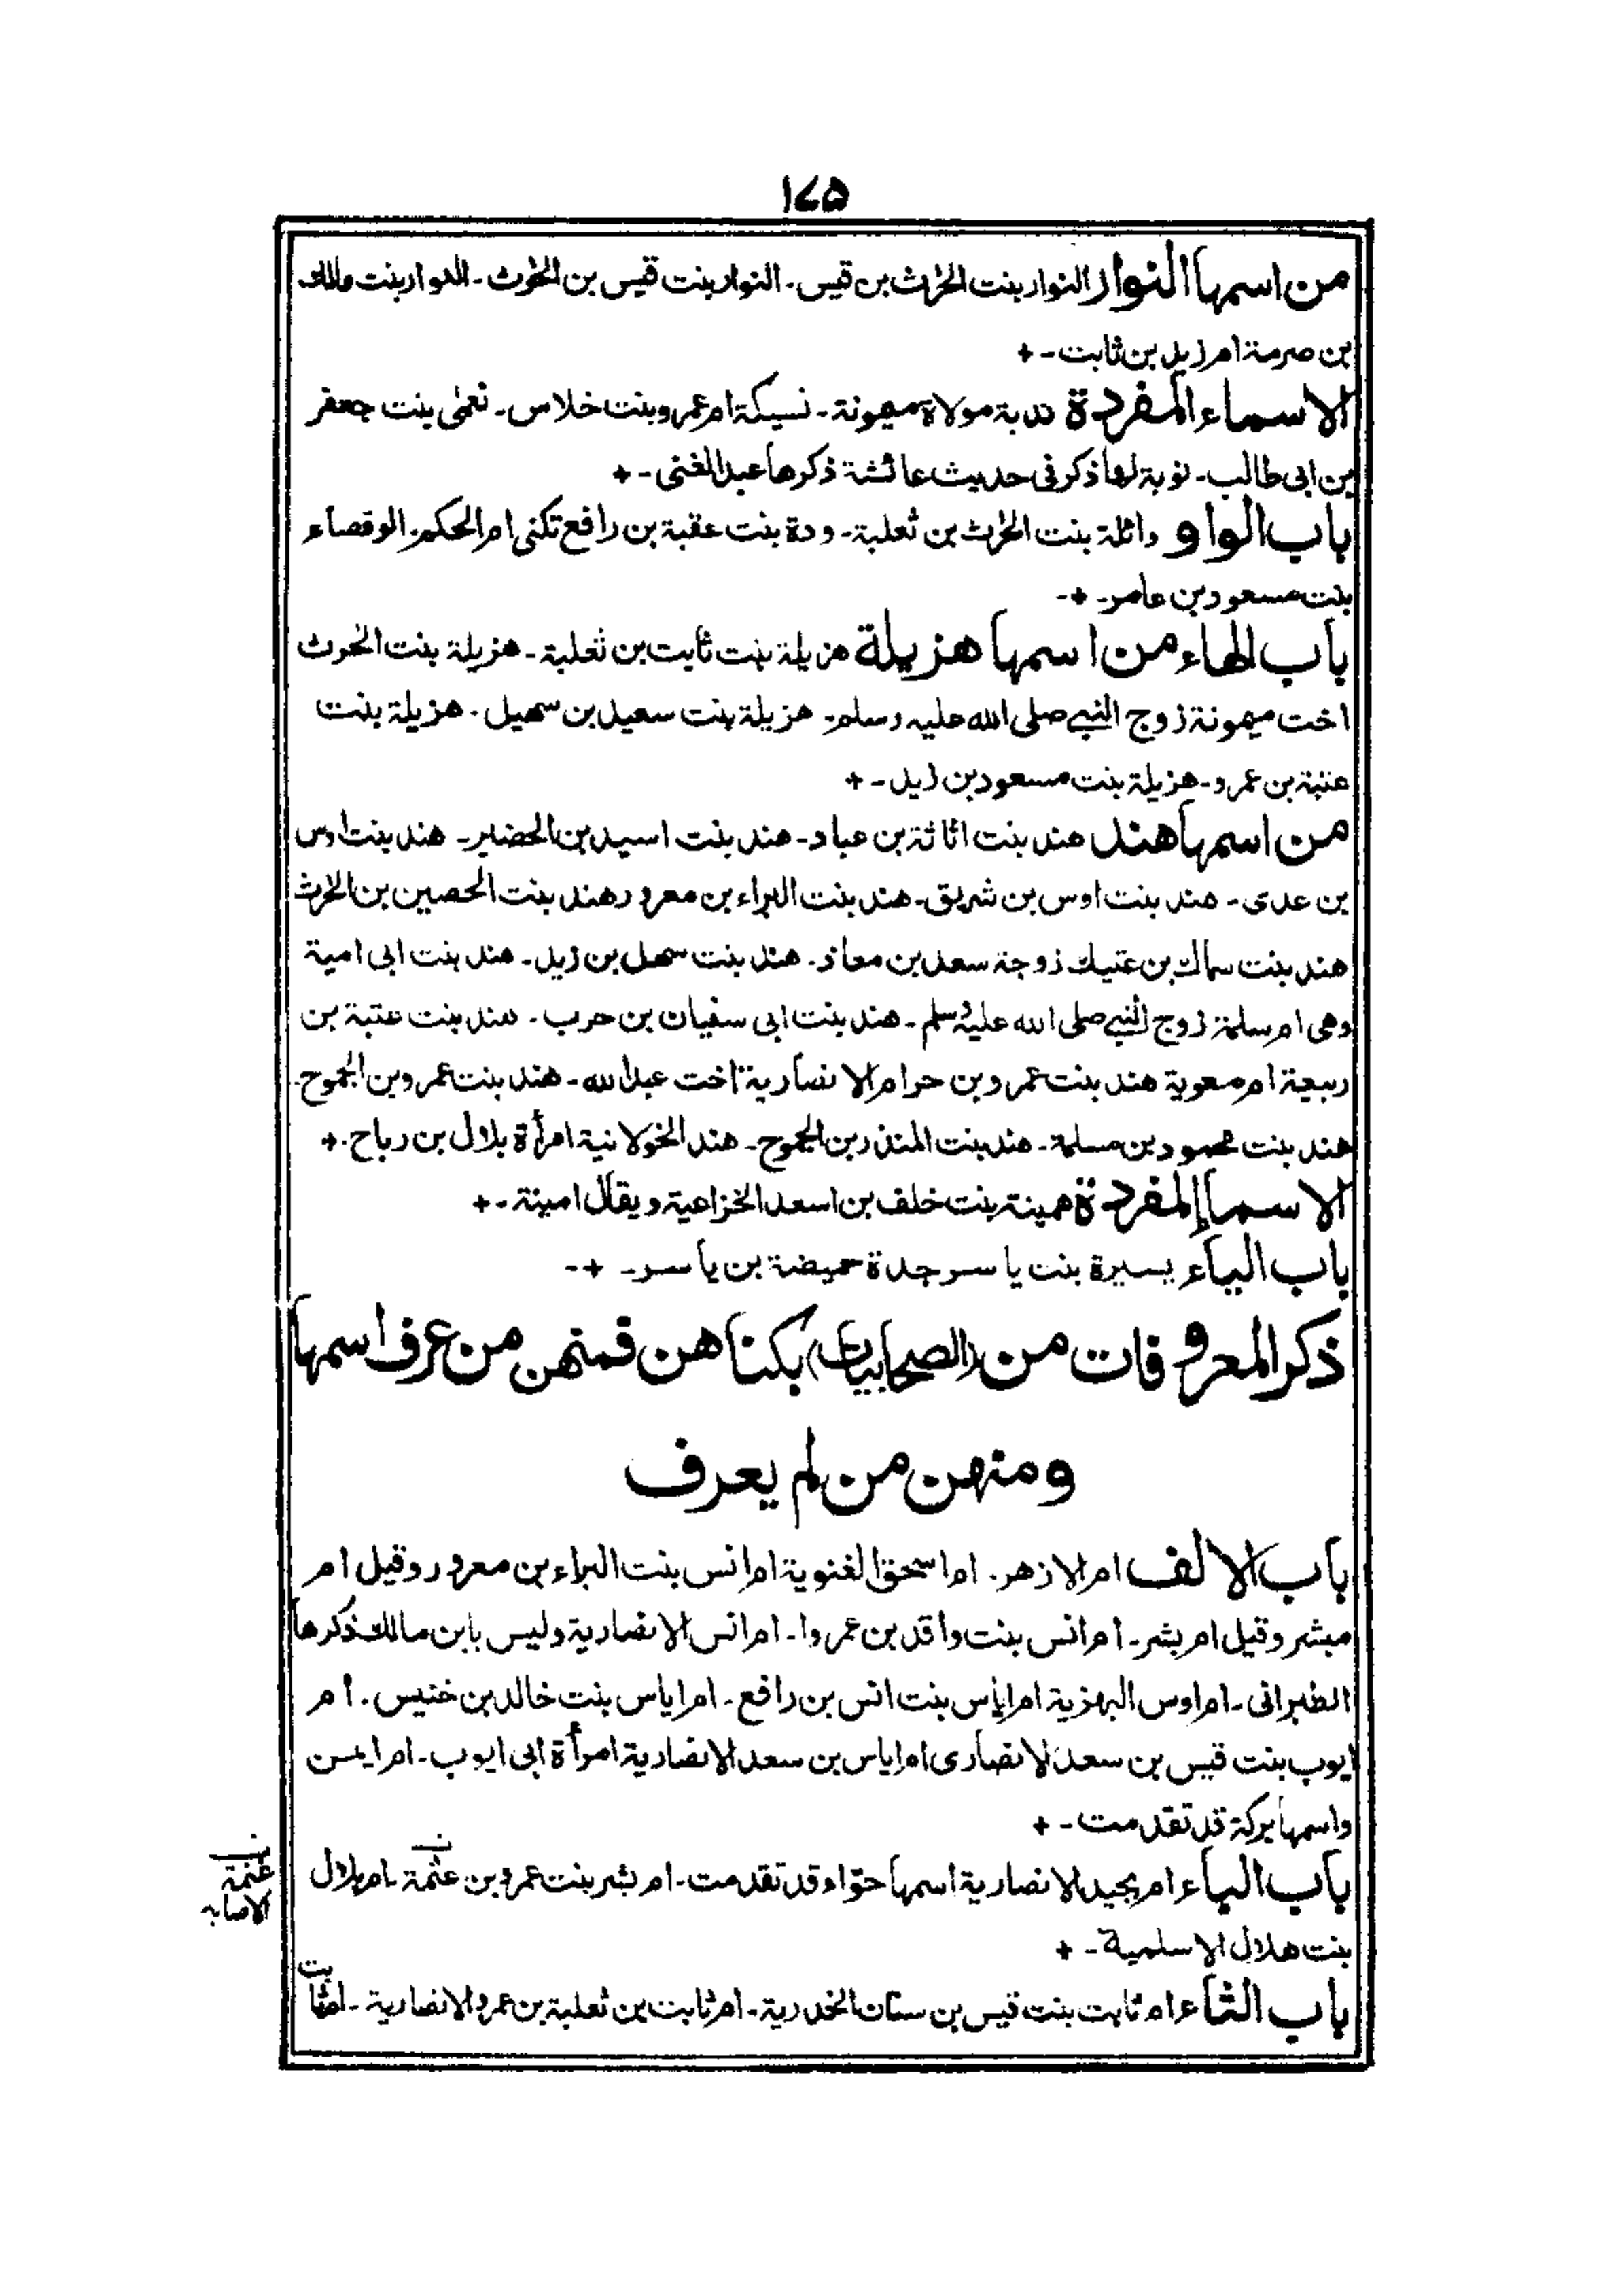 ١٧٥
من اسمها النوار النوار بنت الحرث بن قيس - النوار بنت قيس بن الحرث - النوار بنت مالك
بن صرمة ام زيد بن ثابت - +
الاسماء المفردة ندبة مولاة ميمونة - نسيكة ام عمرو بنت خلاس - نعمى بنت جعفر
بن ابى طالب - نوبة لها ذكر فى حديث عائشة ذكرها عبد الغنى - +
باب الواو واثلة بنت الحرث بن ثعلبة - ودة بنت عقبة بن رافع تكنى ام الحكم - الوقصاء
بنت مسعود بن عامر - + -
باب الهاء من اسمها هزيلة هزيلة بنت ثابت بن ثعلبة - هزيلة بنت الحرث
اخت ميمونة زوج النبي صلى الله عليه وسلم - هزيلة بنت سعيد بن سهيل - هزيلة بنت
عتبة بن عمرو - هزيلة بنت مسعود بن زيد - +
من اسمها هند هند بنت اثاثة بن عباد - هند بنت اسيد بن الحضير - هند بنت اوس
بن عدى - هند بنت اوس بن شريق - هند بنت البراء بن معرور هند بنت الحصين بن الحرث
هند بنت سماك بن عتيك زوجة سعد بن معاذ - هند بنت سهل بن زيد - هند بنت ابى امية
وهى ام سلمة زوج النبي صلى الله عليه وسلم - هند بنت ابى سفيان بن حرب - هند بنت عتبة بن
ربيعة ام معوية هند بنت عمرو بن حرام الانصارية اخت عبد الله - هند بنت عمرو بن الجموح -
هند بنت محمود بن مسلمة - هند بنت المنذر بن الجموح - هند الخولانية امرأة بلال بن رباح - +
الاسماء المفردة همينة بنت خلف بن اسعد الخزاعية ويقال امينة - +
باب الياء يسيرة بنت ياسر جدة حميضة بن ياسر - + -
ذكر المعروفات من (الصحابيات) بكناهن فمنهن من عرف اسمها
ومنهن من لم يعرف
باب الالف ام الازهر - ام اسحق الغنوية ام انس بنت البراء بن معرور وقيل ام
مبشر وقيل ام بشر - ام انس بنت واقد بن عمروا - ام انس الانصارية وليس بابن مالك ذكرها
الطبرانى - ام اوس البهزية ام اياس بنت انس بن رافع - ام اياس بنت خالد بن خنيس - ام
ايوب بنت قيس بن سعد الانصارى ام اياس بن سعد الانصارية امرأة ابى ايوب - ام ايمن
واسمها بركة قد تقدمت - +
باب الباء ام بجيد الانصارية اسمها حوّاء قد تقدمت - ام بشر بنت عمرو بن عثمة - ام بلال
عنمة
الاصابه
بنت هلال الاسلمية - +
باب الثاء ام ثابت بنت قيس بن سنان الخدرية - ام ثابت بن ثعلبة بن عمرو الانصارية - ام ثابت